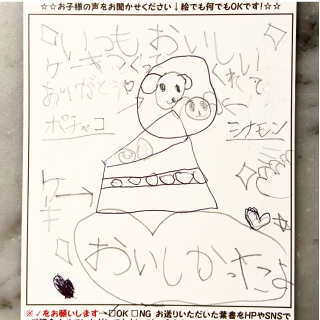 ☆☆お子様の声をお聞かせください↓絵でも何でもOKです!☆☆
いつもおいしい
ケーキつくってくれて
ありがとう♡
ポチャコ
シナモン
ケーキ
おいしかったよ
※✓をお願いします→☐OK ☐NG お送りいただいた葉書をHPやSNSで